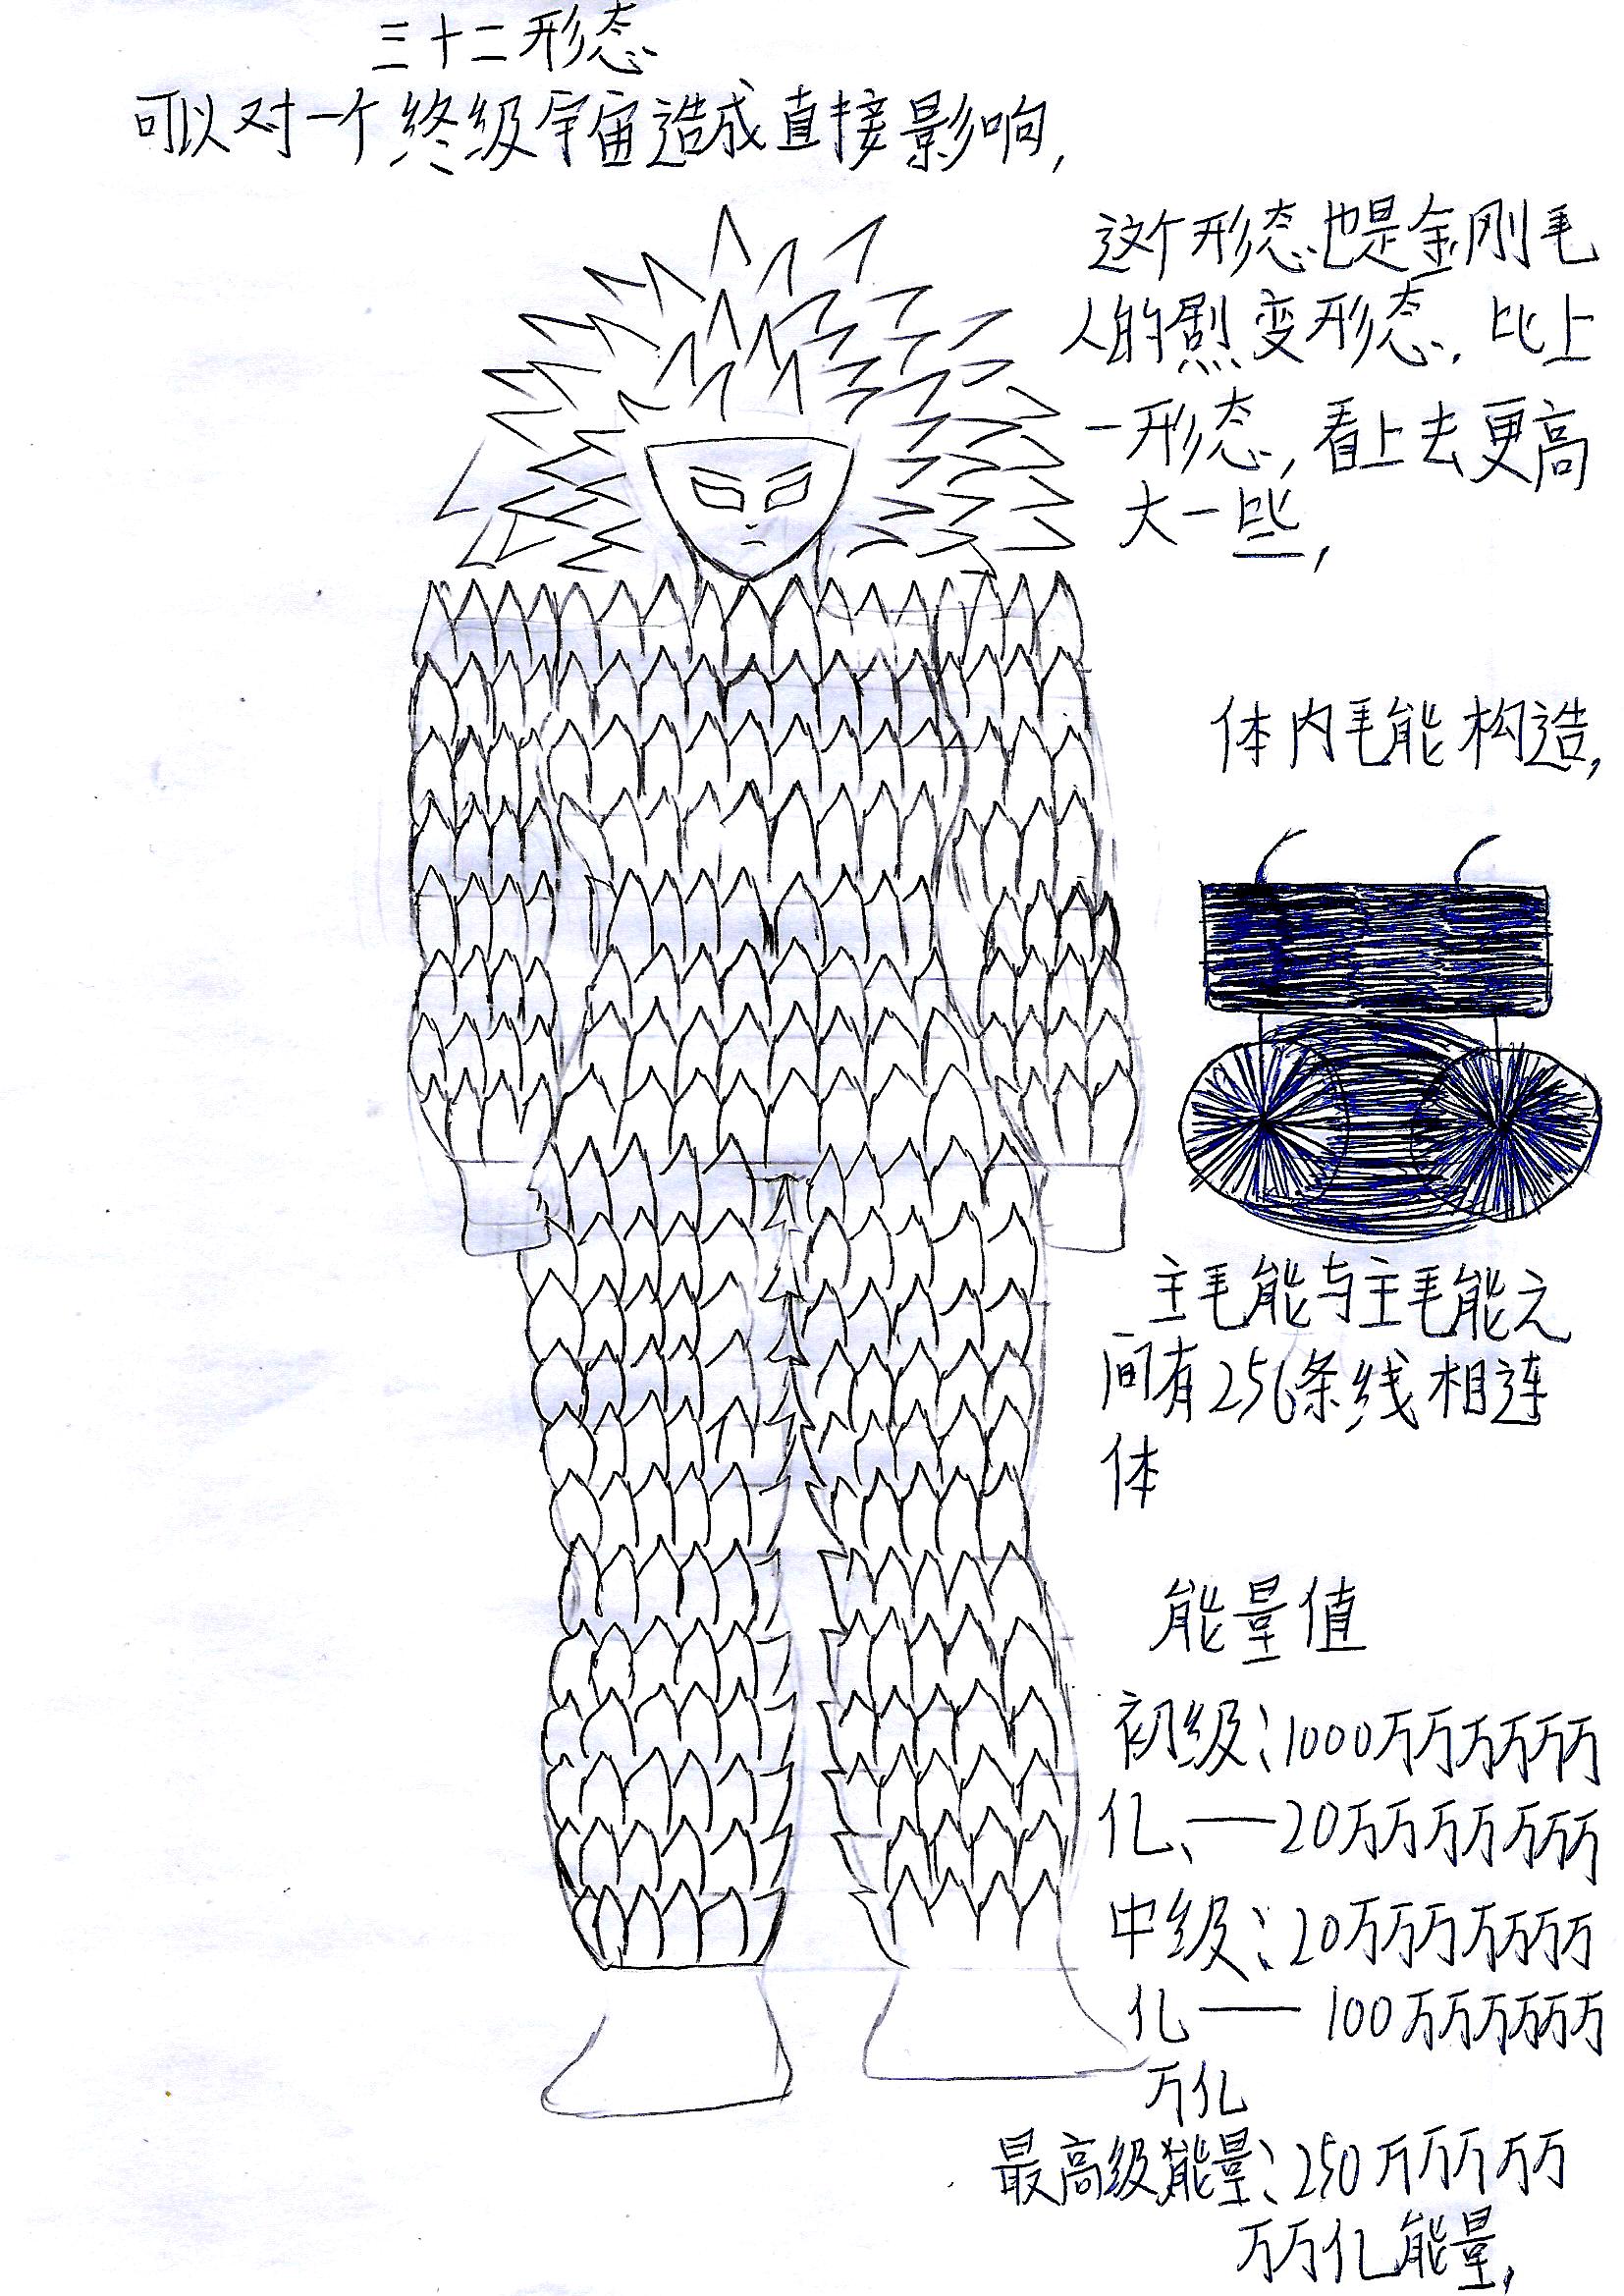 三十二形态
可以对一个终级宇宙造成直接影响,
这个形态也是金刚毛
人的剧变形态.比上
一形态,看上去更高
大一些,
体内毛能构造,
主毛能与主毛能之
间有256条线相连
体
能量值
初级:1000万万万万万万
亿、—20万万万万万万万
中级:20万万万万万万万
亿—100万万万万万万
万亿
最高级能量:250万万万万万
万万亿能量,